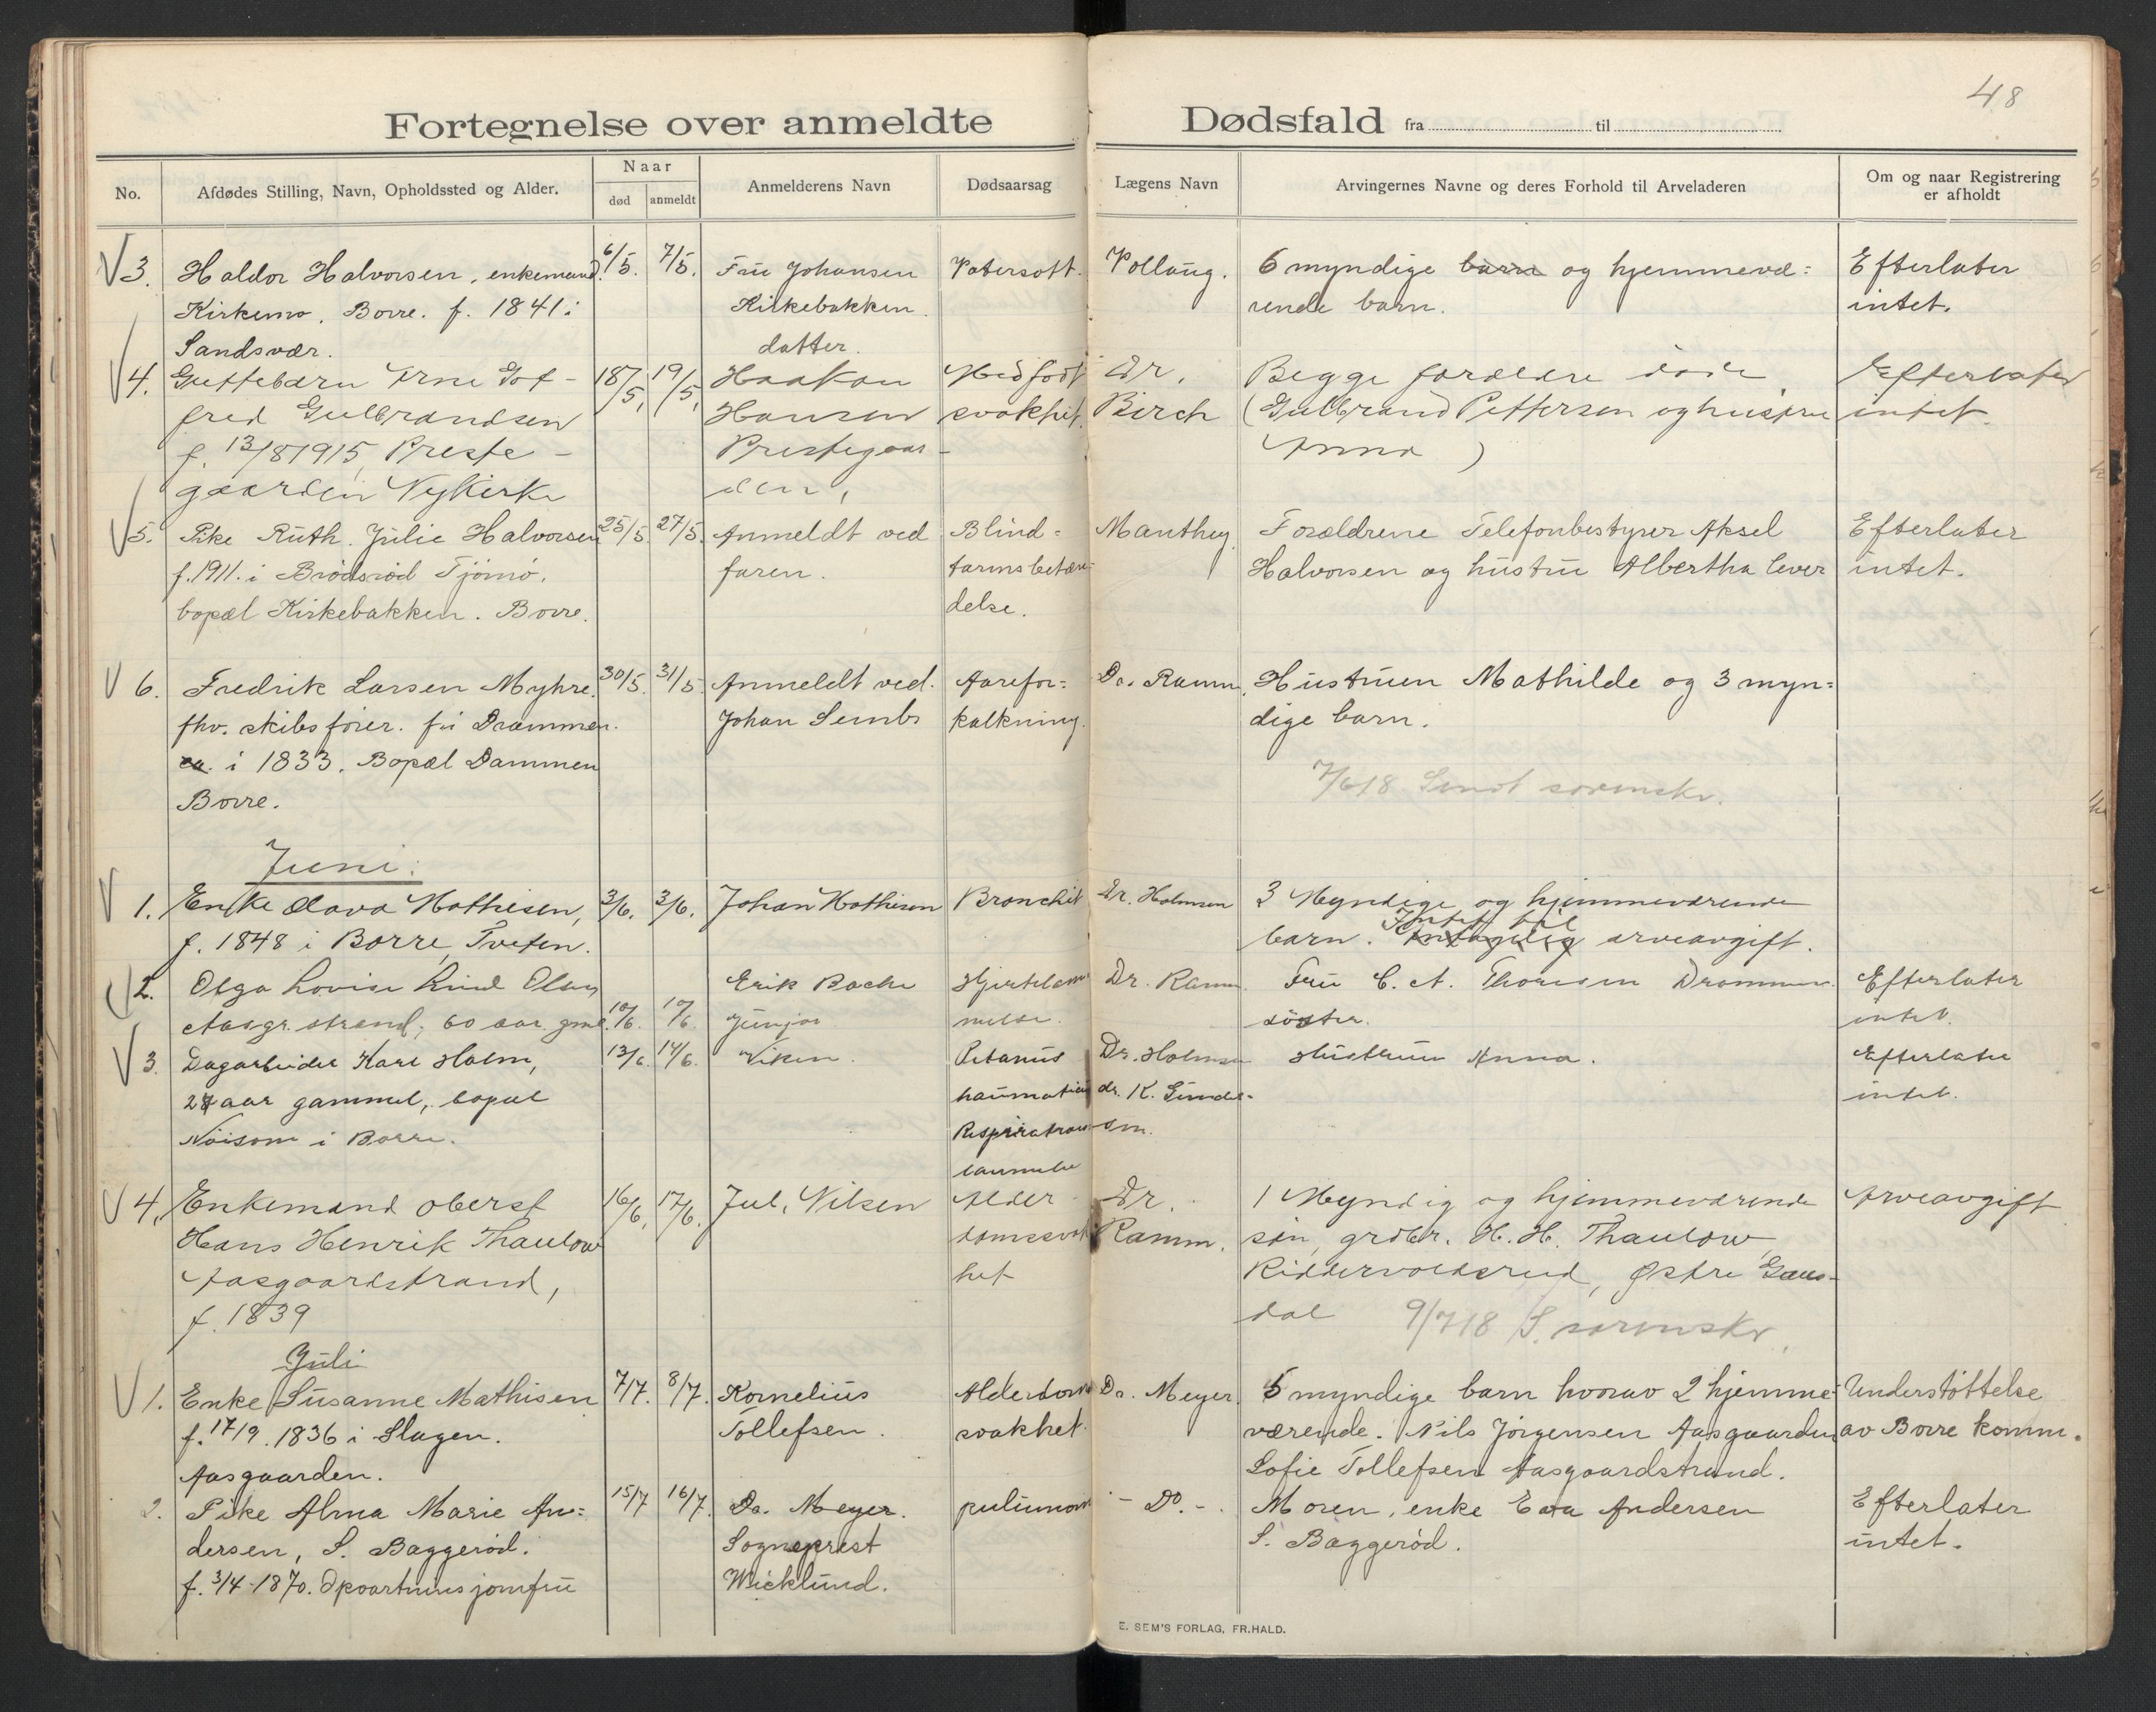 48
Fortegnelse over anmeldte Dødsfald fra til
No. Afdødes Stilling, Navn, Opholdssted og Alder. Naar død anmeldt Anmelderens Navn Dødsaarsag Lægens Navn Arvingernes Navne og deres Forhold til Arveladeren Om og naar Registrering er afholdt
V 3. Haldor Halvorsen, enkemand. 6/5. 7/5. Fru Johansen Vatersott. Pollung. 6 myndige barn og hjemmevæ= Efterlater
Kirkemo. Borre. f. 1841 i Kirkebakken. rende barn. intet.
Sandsvær. datter.
V 4. Guttebarn Arne Got- 18/5, 19/5, Haakon Medfødt Dr. Begge forældre døde. Efterlater
fred Gulbrandsen Hansen svakhet. Birch (Gulbrand Pettersen og hustru intet.
f. 13/8 1915, Preste- Prestegaar- Anna)
gaarden Nykirke den,
V 5. Pike Ruth. Julie Halvorsen 25/5. 27/5. Anmeldt ved Blind= Manthey. Forældrene Telefonbestyrer Aksel Efterlater
f. 1911. i Brödsröd Tjömö. faren. tarmsbetæn- Halvorsen og hustru Albertha lever intet.
bopæl Kirkebakken. Borre. delse.
V 6. Fredrik Larsen Myhre. 30/5. 31/5. Anmeldt ved. Aarefor= Dr. Ramm. Hustruen Mathilde og 3 myn=
fhv. skibsförer. fra Drammen. Johan Sembs kalkning. dige barn.
i 1833. Bopæl Dammen 7/6 18 Sendt sorenskr.
Borre.
Juni:
V 1. Enke Olava Mathisen, 3/6. 3/6. Johan Mathisen Bronchit Dr. Holmsen 3 Myndige og hjemmeværende
f. 1848 i Borre, Tveten. barn. Intet til arveavgift.
V 2. Olga Lovise Lind Olsen Erik Bache Hjertelam- Dr. Ramm. Fru C. A. Thoresen Drammen. Efterlater
Aasgr.strand, 60 aar gml. 10/6. 10/6 junior melse. søster. intet.
V 3. Dagarbeider Karl Holm, 13/6. 14/6. Viken. Tetanus Dr. Holmsen Hustruen Anna. Efterlater
27 aar gammel, bopæl dr. K. Gunder- intet.
Nöisom i Borre. Respirations- sen.
lammelse
V 4. Enkemand oberst 16/6, 17/6. Jul. Nilsen Alder- Dr. 1 Myndig og hjemmeværende Arveavgift
Hans Henrik Thaulow domssvak- Ramm. søn, grdbr. H. H. Thaulow,
Aasgaardstrand, het Østre Gaus-
f. 1839 dal 9/7 18 S. sorenskr.
Juli
V 1. Enke Susanne Mathisen 7/7. 8/7. Kornelius Alderdoms Dr. Meyer. 5 myndige barn hvorav 2 hjemme- Understöttelse
f. 17/9. 1836 i Slagen. Tollefsen. svakhet. værende. Nils Jörgensen Aasgaarden av Borre komm.
Aasgaarden. Sofie Tollefsen Aasgaardstrand.
2. Pike Alma Marie An= 15/7 16/7. Dr. Meyer. - Do. - . Moren, enke Eva Andersen Efterlater
dersen, S. Baggeröd. Sogneprest S. Baggeröd. intet.
f. 3/4-1870. Wicklund.
E. SEM'S FORLAG, FR.HALD.